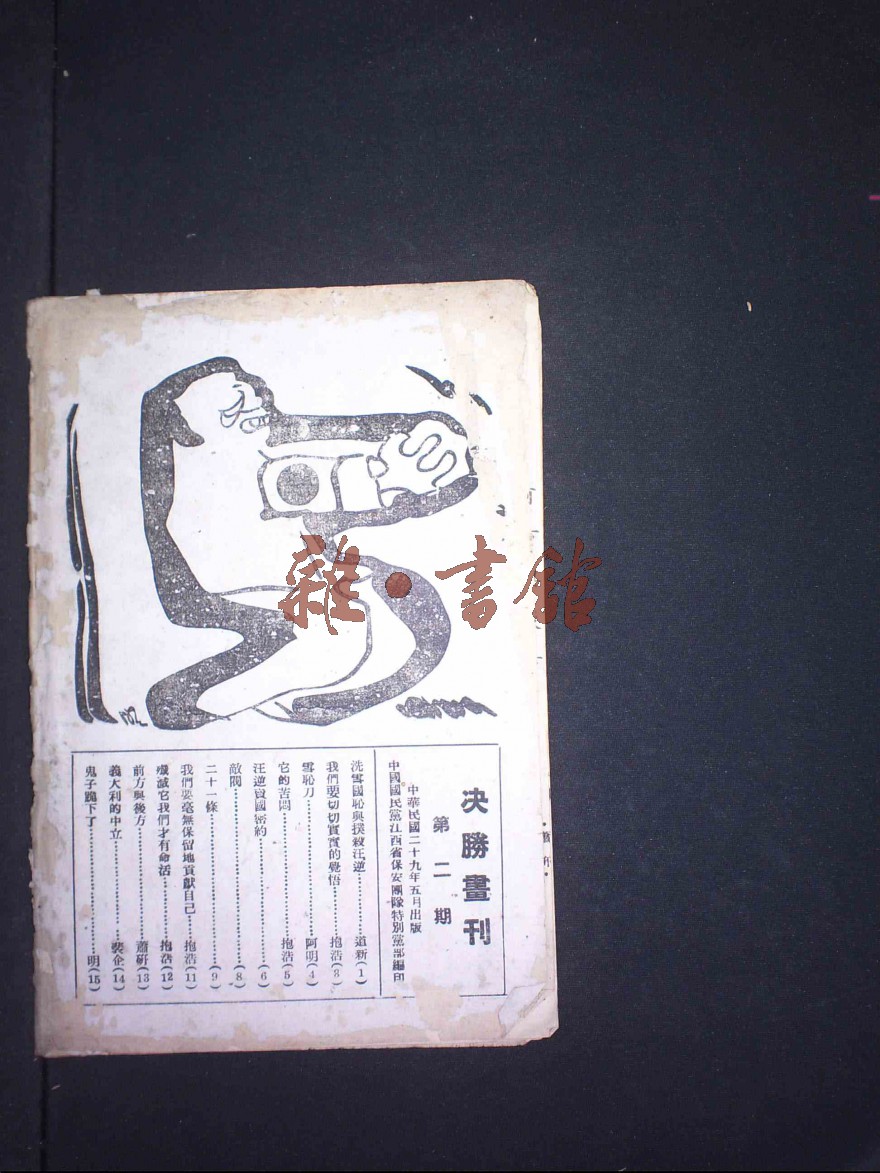 決勝畫刊
第二期
中華民國二十九年五月出版
中國國民黨江西省保安團隊特別黨部編印
洗雪國恥與撲殺汪逆……道新(1)
我們要切切實實的覺悟……抱浩(3)
雪恥刀……阿明(4)
它的苦悶……抱浩(5)
汪逆賣國密約……(6)
敵閥……(8)
二十一條……(9)
我們要毫無保留地貢獻自己……抱浩(11)
殲滅它我們才有命活……抱浩(12)
前方與後方……蕭硏(13)
義大利的中立……裴企(14)
鬼子跪下了……明(15)
雜·書館